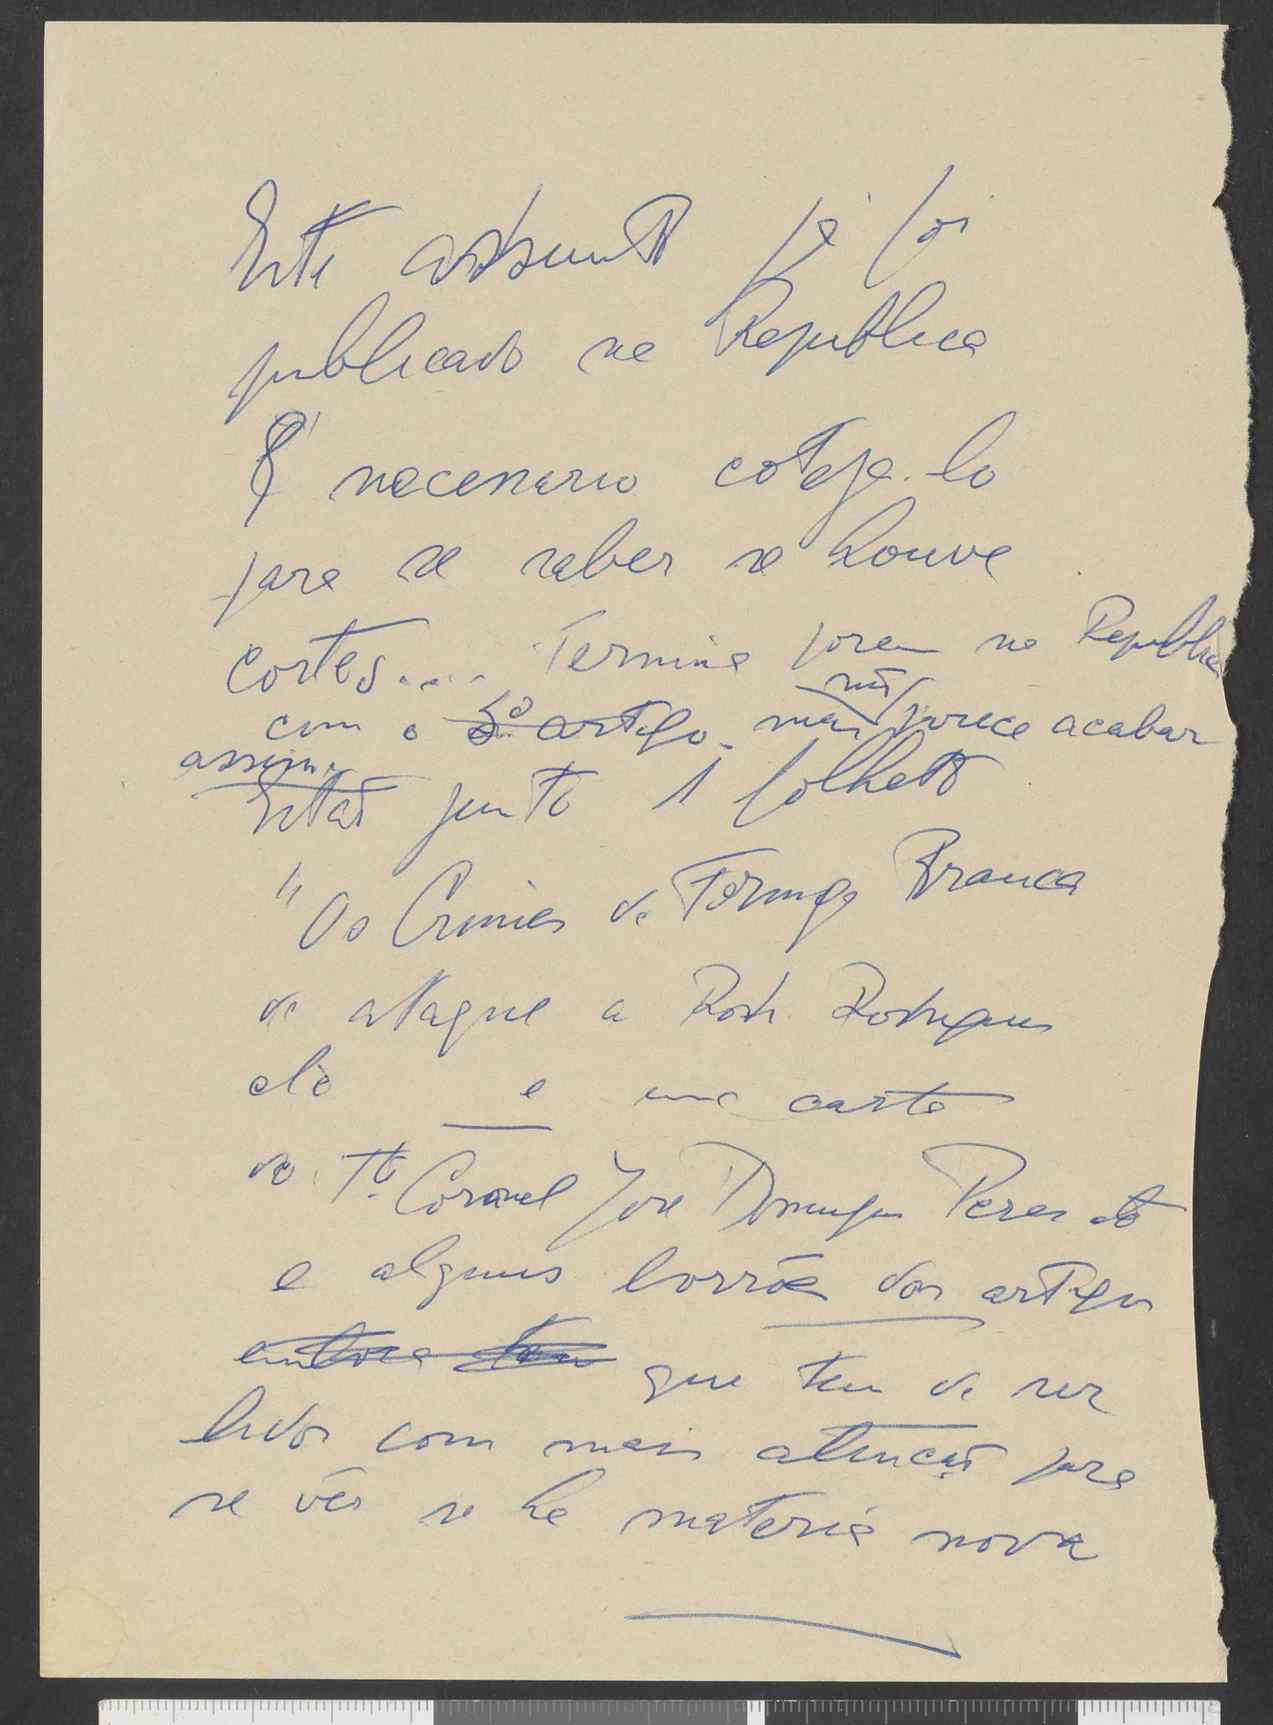 Este assunto já foi
publicado na Republica
É necessario coteja-lo
para se saber se houve
cortes.... Termina porem na Republica
com o 3º artigo. mas não parece acabar
assim.
Estão junto 1 folheto
"Os Crimes da Formiga Branca
de ataque a Rod. Rodrigues
e uma carta
do Tte. Coronel José Domingos Peres
e alguns borrões dos artigos
embora que tem de ser
lidos com mais atenção para
se vêr se ha materia nova